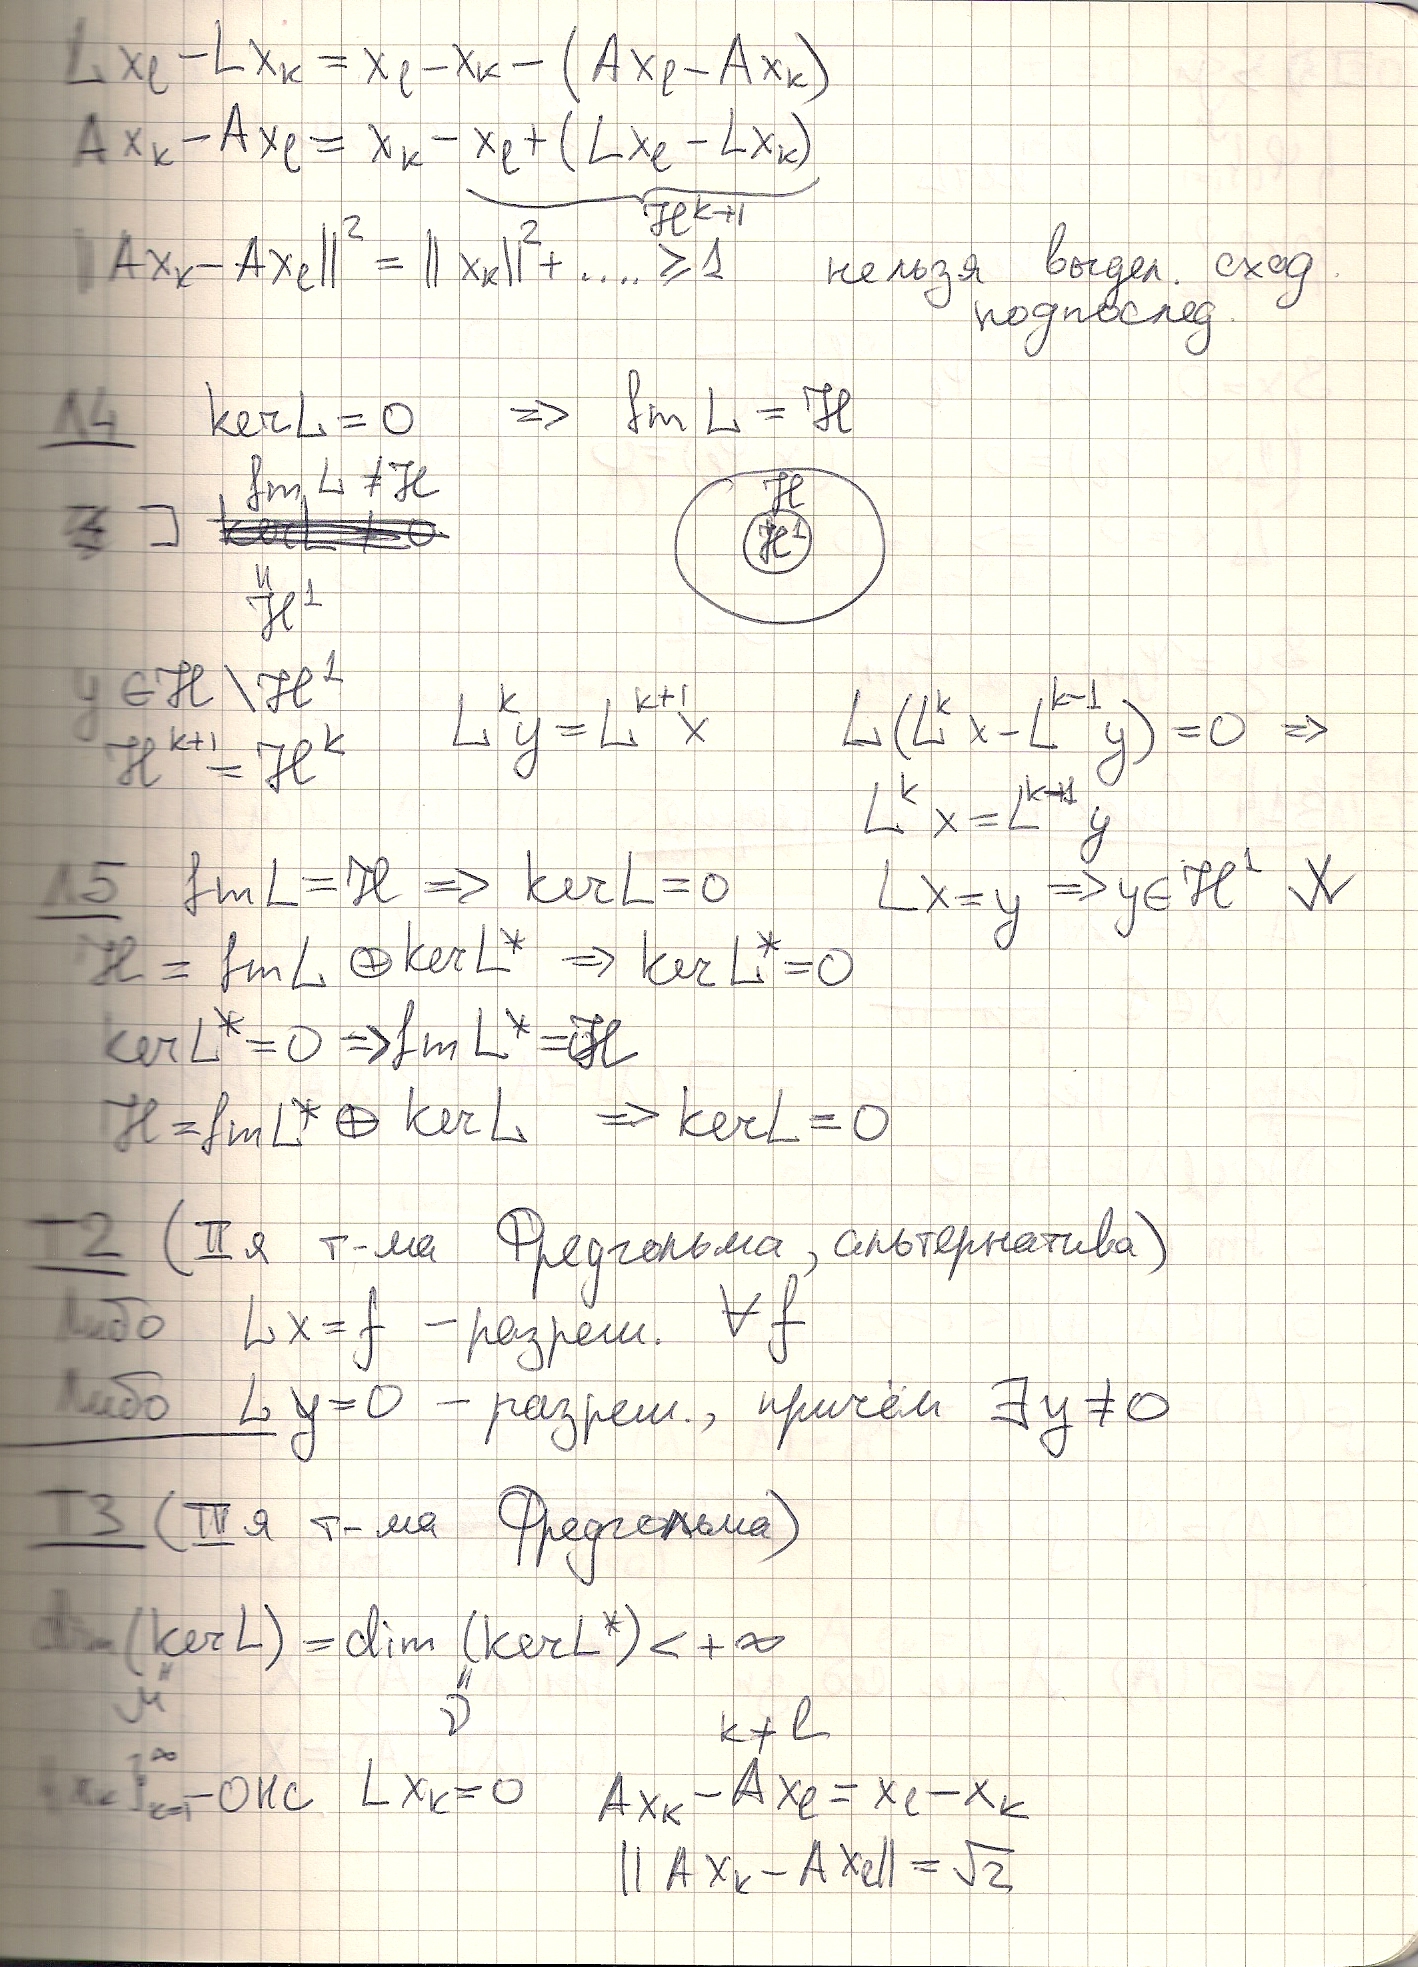 Lxₗ − Lxₖ = xₗ − xₖ − (Axₗ − Axₖ)
Axₖ − Axₗ = xₖ − xₗ + (Lxₗ − Lxₖ)
ℋ^{k+1}
||Axₖ − Axₗ||² = ||xₖ||² + .... ≥ 1 нельзя выдел. сход.
подпослед.
Л4 kerL = 0 => ImL = ℋ
ImL ≠ ℋ
] kerL ≠ 0
ℋ
ℋ¹
=
ℋ¹
y ∈ ℋ \ ℋ¹
ℋ^{k+1} = ℋ^k L^k y = L^{k+1} x L(L^k x − L^{k−1} y) = 0 =>
L^k x = L^{k−1} y
Л5 ImL = ℋ => kerL = 0 Lx = y => y ∈ ℋ¹
ℋ = ImL ⊕ kerL* => kerL* = 0
kerL* = 0 => ImL* = ℋ
ℋ = ImL* ⊕ kerL => kerL = 0
T2 (IIя т-ма Фредгольма, альтернатива)
Либо Lx = f − разреш. ∀f
Либо Ly = 0 − разреш., причём ∃y ≠ 0
T3 (IIIя т-ма Фредгольма)
dim(kerL) = dim(kerL*) < +∞
= =
μ ν
k ≠ l
{xₖ}_{k=1}^∞ − ОНС Lxₖ = 0 Axₖ − Axₗ = xₗ − xₖ
||Axₖ − Axₗ|| = √2